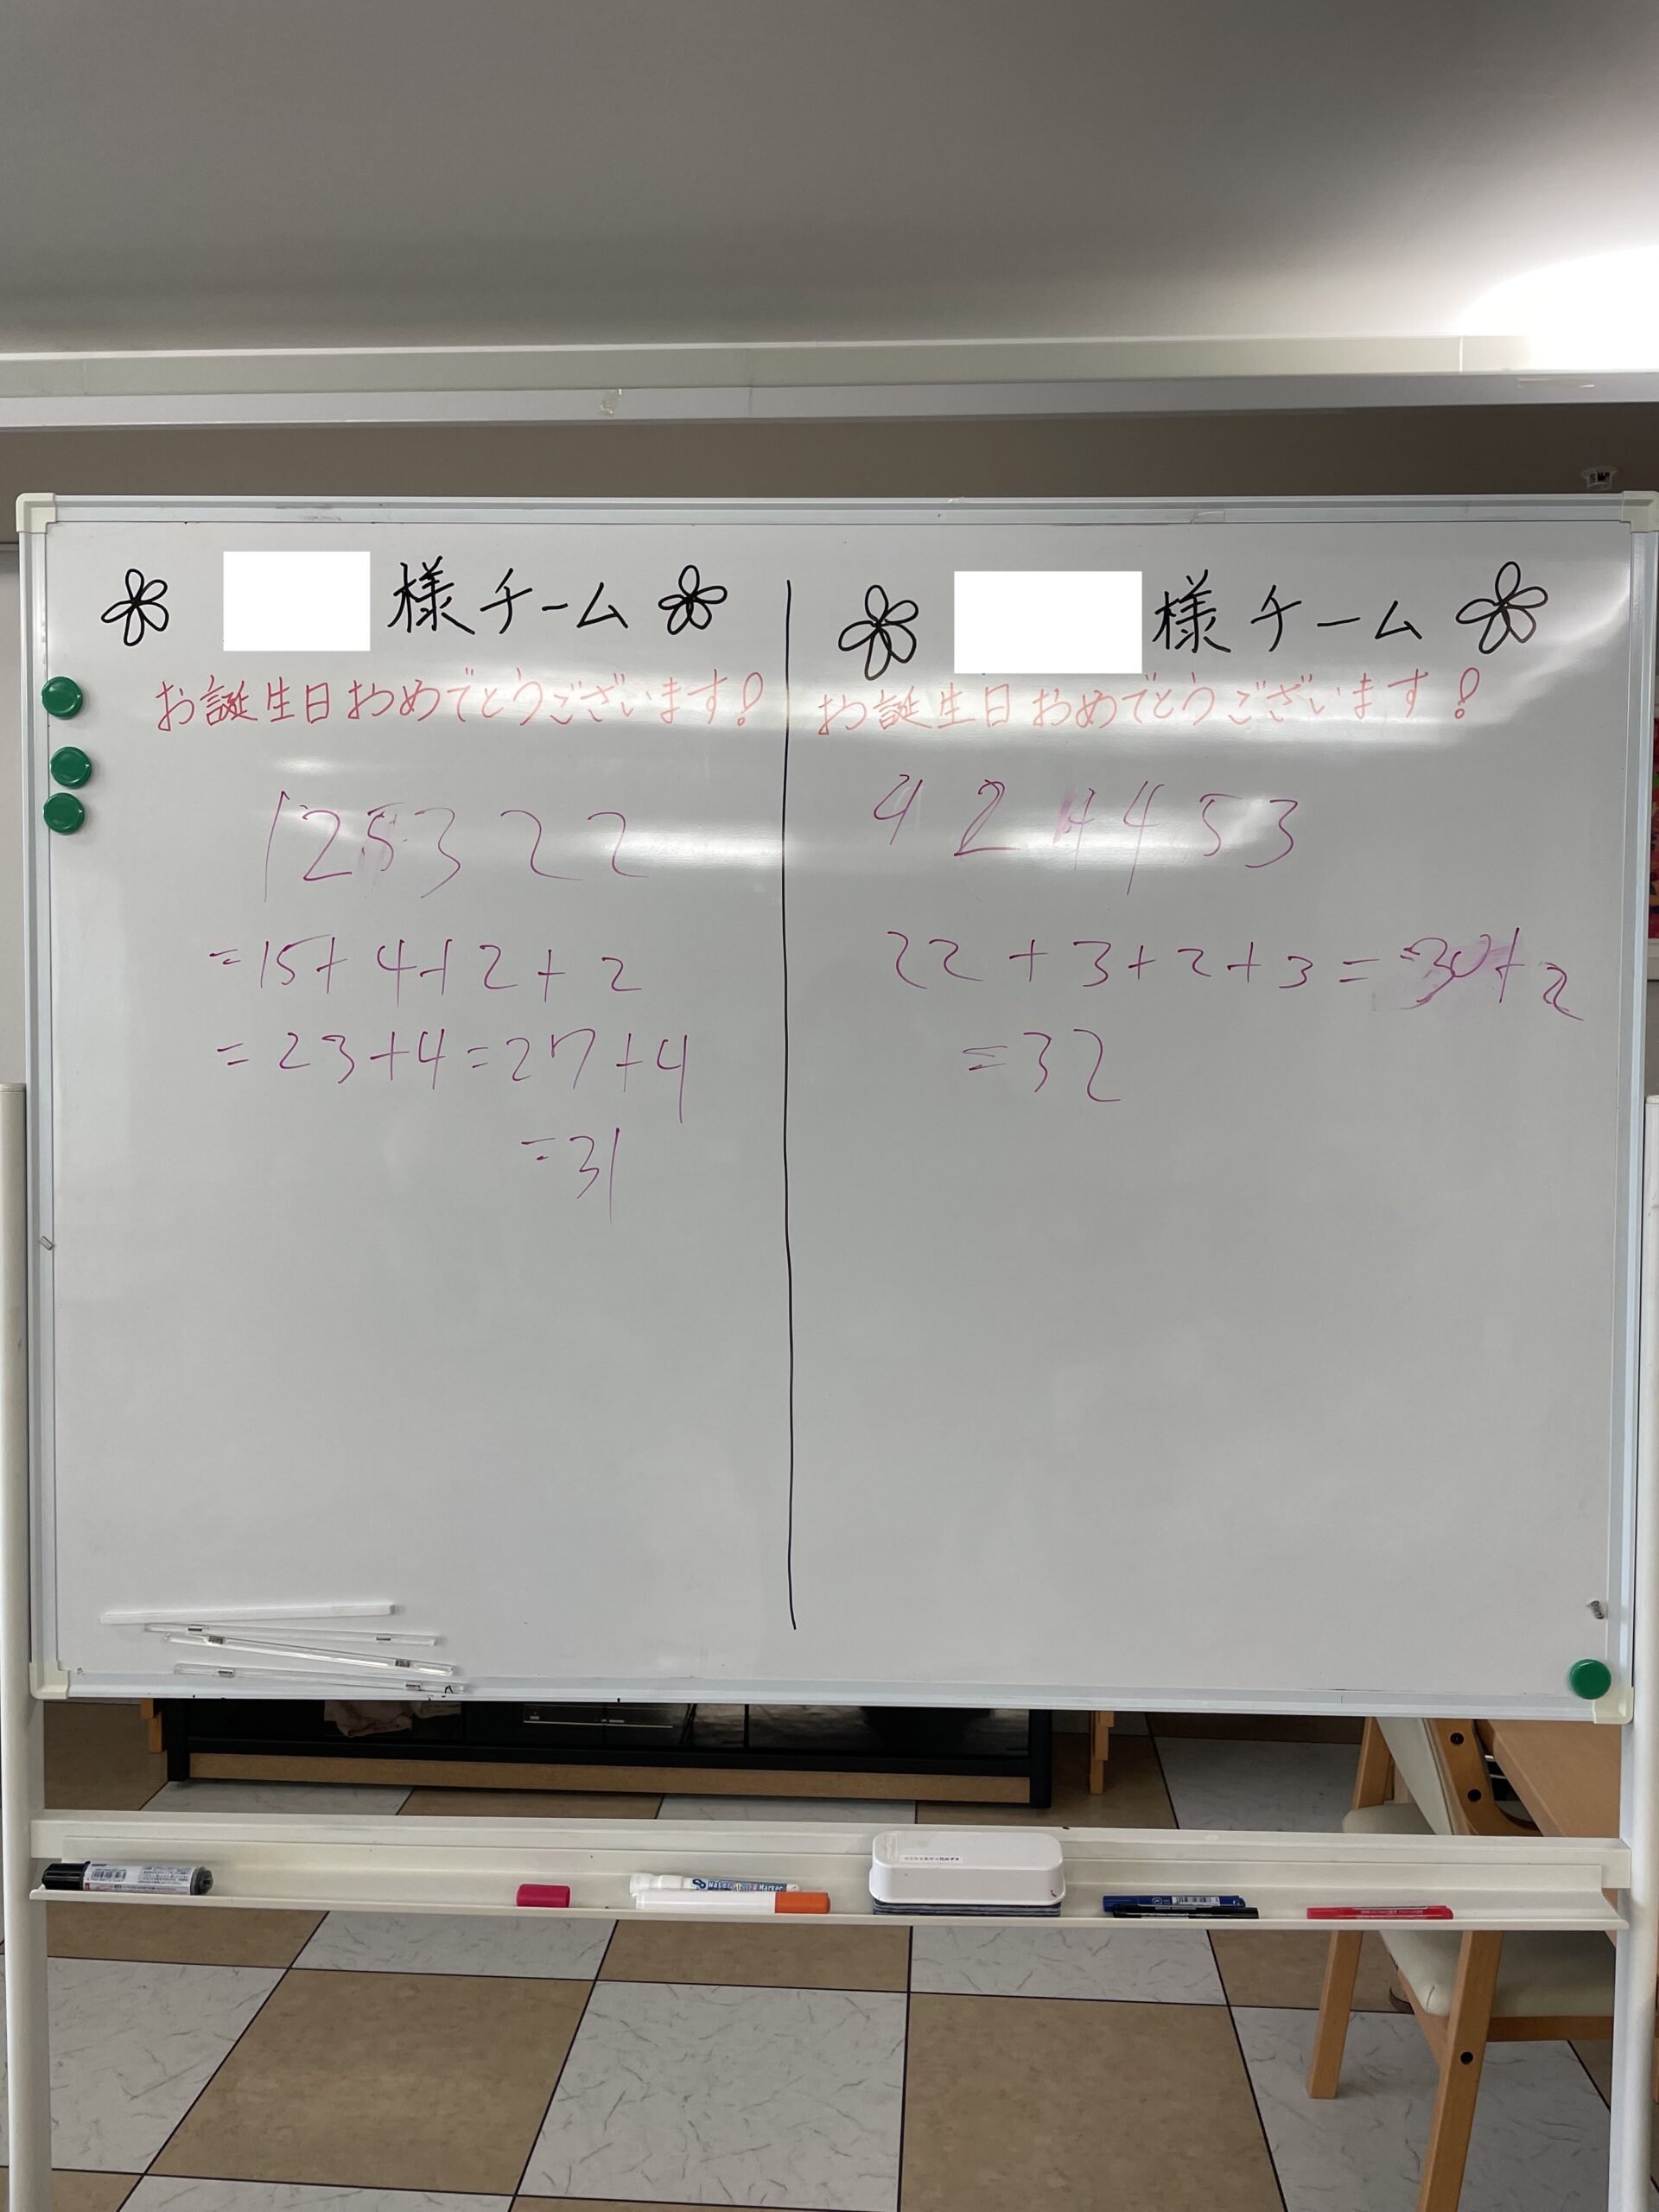 様チーム
お誕生日おめでとうございます!
125322
=15+4+2+2
=23+4=27+4
=31
様チーム
お誕生日おめでとうございます!
4 2 4 4 5 3
22+3+2+3=30+2
=32